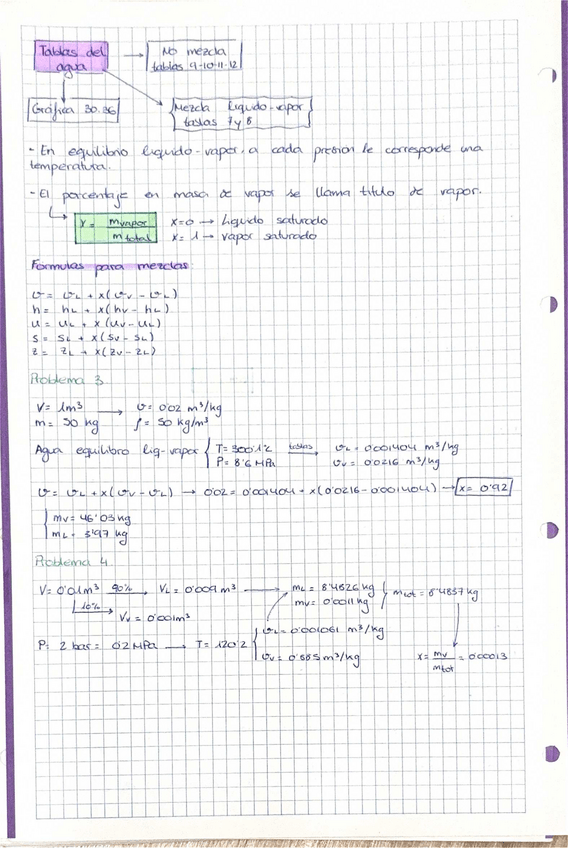 Tablas del → No mezcla
agua tablas 9-10-11-12
Gráfica 30.36 Mezcla líquido-vapor
tablas 7 y 8
- En equilibrio líquido-vapor, a cada presión le corresponde una
temperatura.
- El porcentaje en masa de vapor se llama título de vapor.
x = m vapor / m total x=0 → líquido saturado
x= 1 → vapor saturado
Fórmulas para mezclas:
v = vL + x(vv - vL)
h = hL + x(hv - hL)
u = uL + x(uv - uL)
s = sL + x(sv - sL)
z = zL + x(zv - zL)
Problema 3
V= 1m³ → v= 0'02 m³/kg
m= 50 kg ρ= 50 kg/m³
Agua equilibrio liq-vapor { T= 300'12 tablas → vL = 0'001404 m³/kg
P= 8'6 MPa vv = 0'0216 m³/kg
v = vL + x(vv - vL) → 0'02 = 0'001404 + x(0'0216-0'001404) → x= 0'92
mv= 46'03 kg
mL= 3'97 kg
Problema 4
V= 0'01m³ 90% → VL = 0'009 m³ → mL = 8'4826 kg
mv= 0'0011 kg } mtot = 8'4837 kg
10% → Vv = 0'001m³
P= 2 bar = 0'2 MPa → T= 120'2 { vL = 0'001061 m³/kg
vv = 0'885 m³/kg
x= mv / mtot = 0'00013